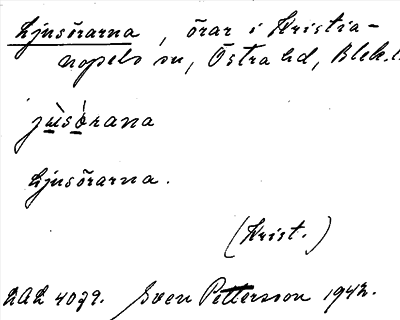 Ljusörarna, örar i Kristia-
nopels sn, Östra hd, Blek.l.
jùsórana
Ljusörarna.
(Krist.)
LAL 4079. Sven Pettersson 1942.